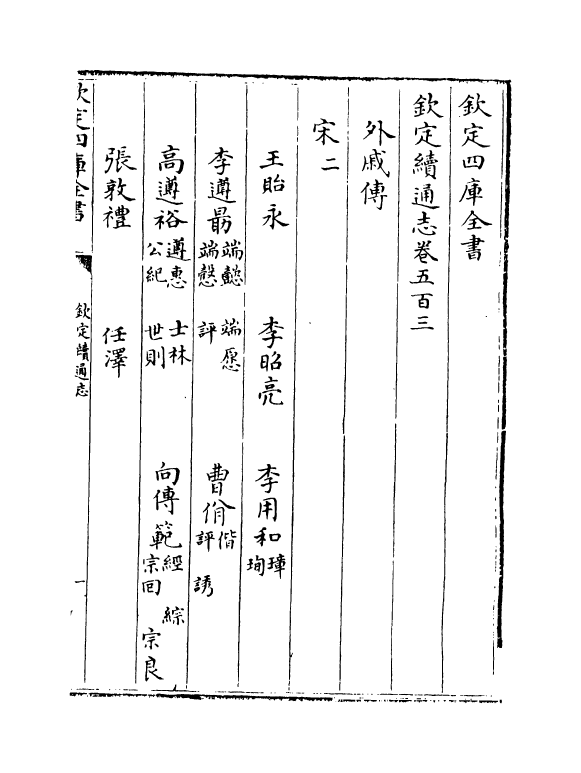 欽定四庫全書
欽定續通志卷五百三
外戚傳
宋二
王貽永　李昭亮　李用和璋珣
李遵勗端懿端慤端愿評　曹佾偕評誘
高遵裕遵惠公紀士林世則　向傳範經宗回綜宗良
張敦禮　任澤
欽定四庫全書　欽定續通志　一